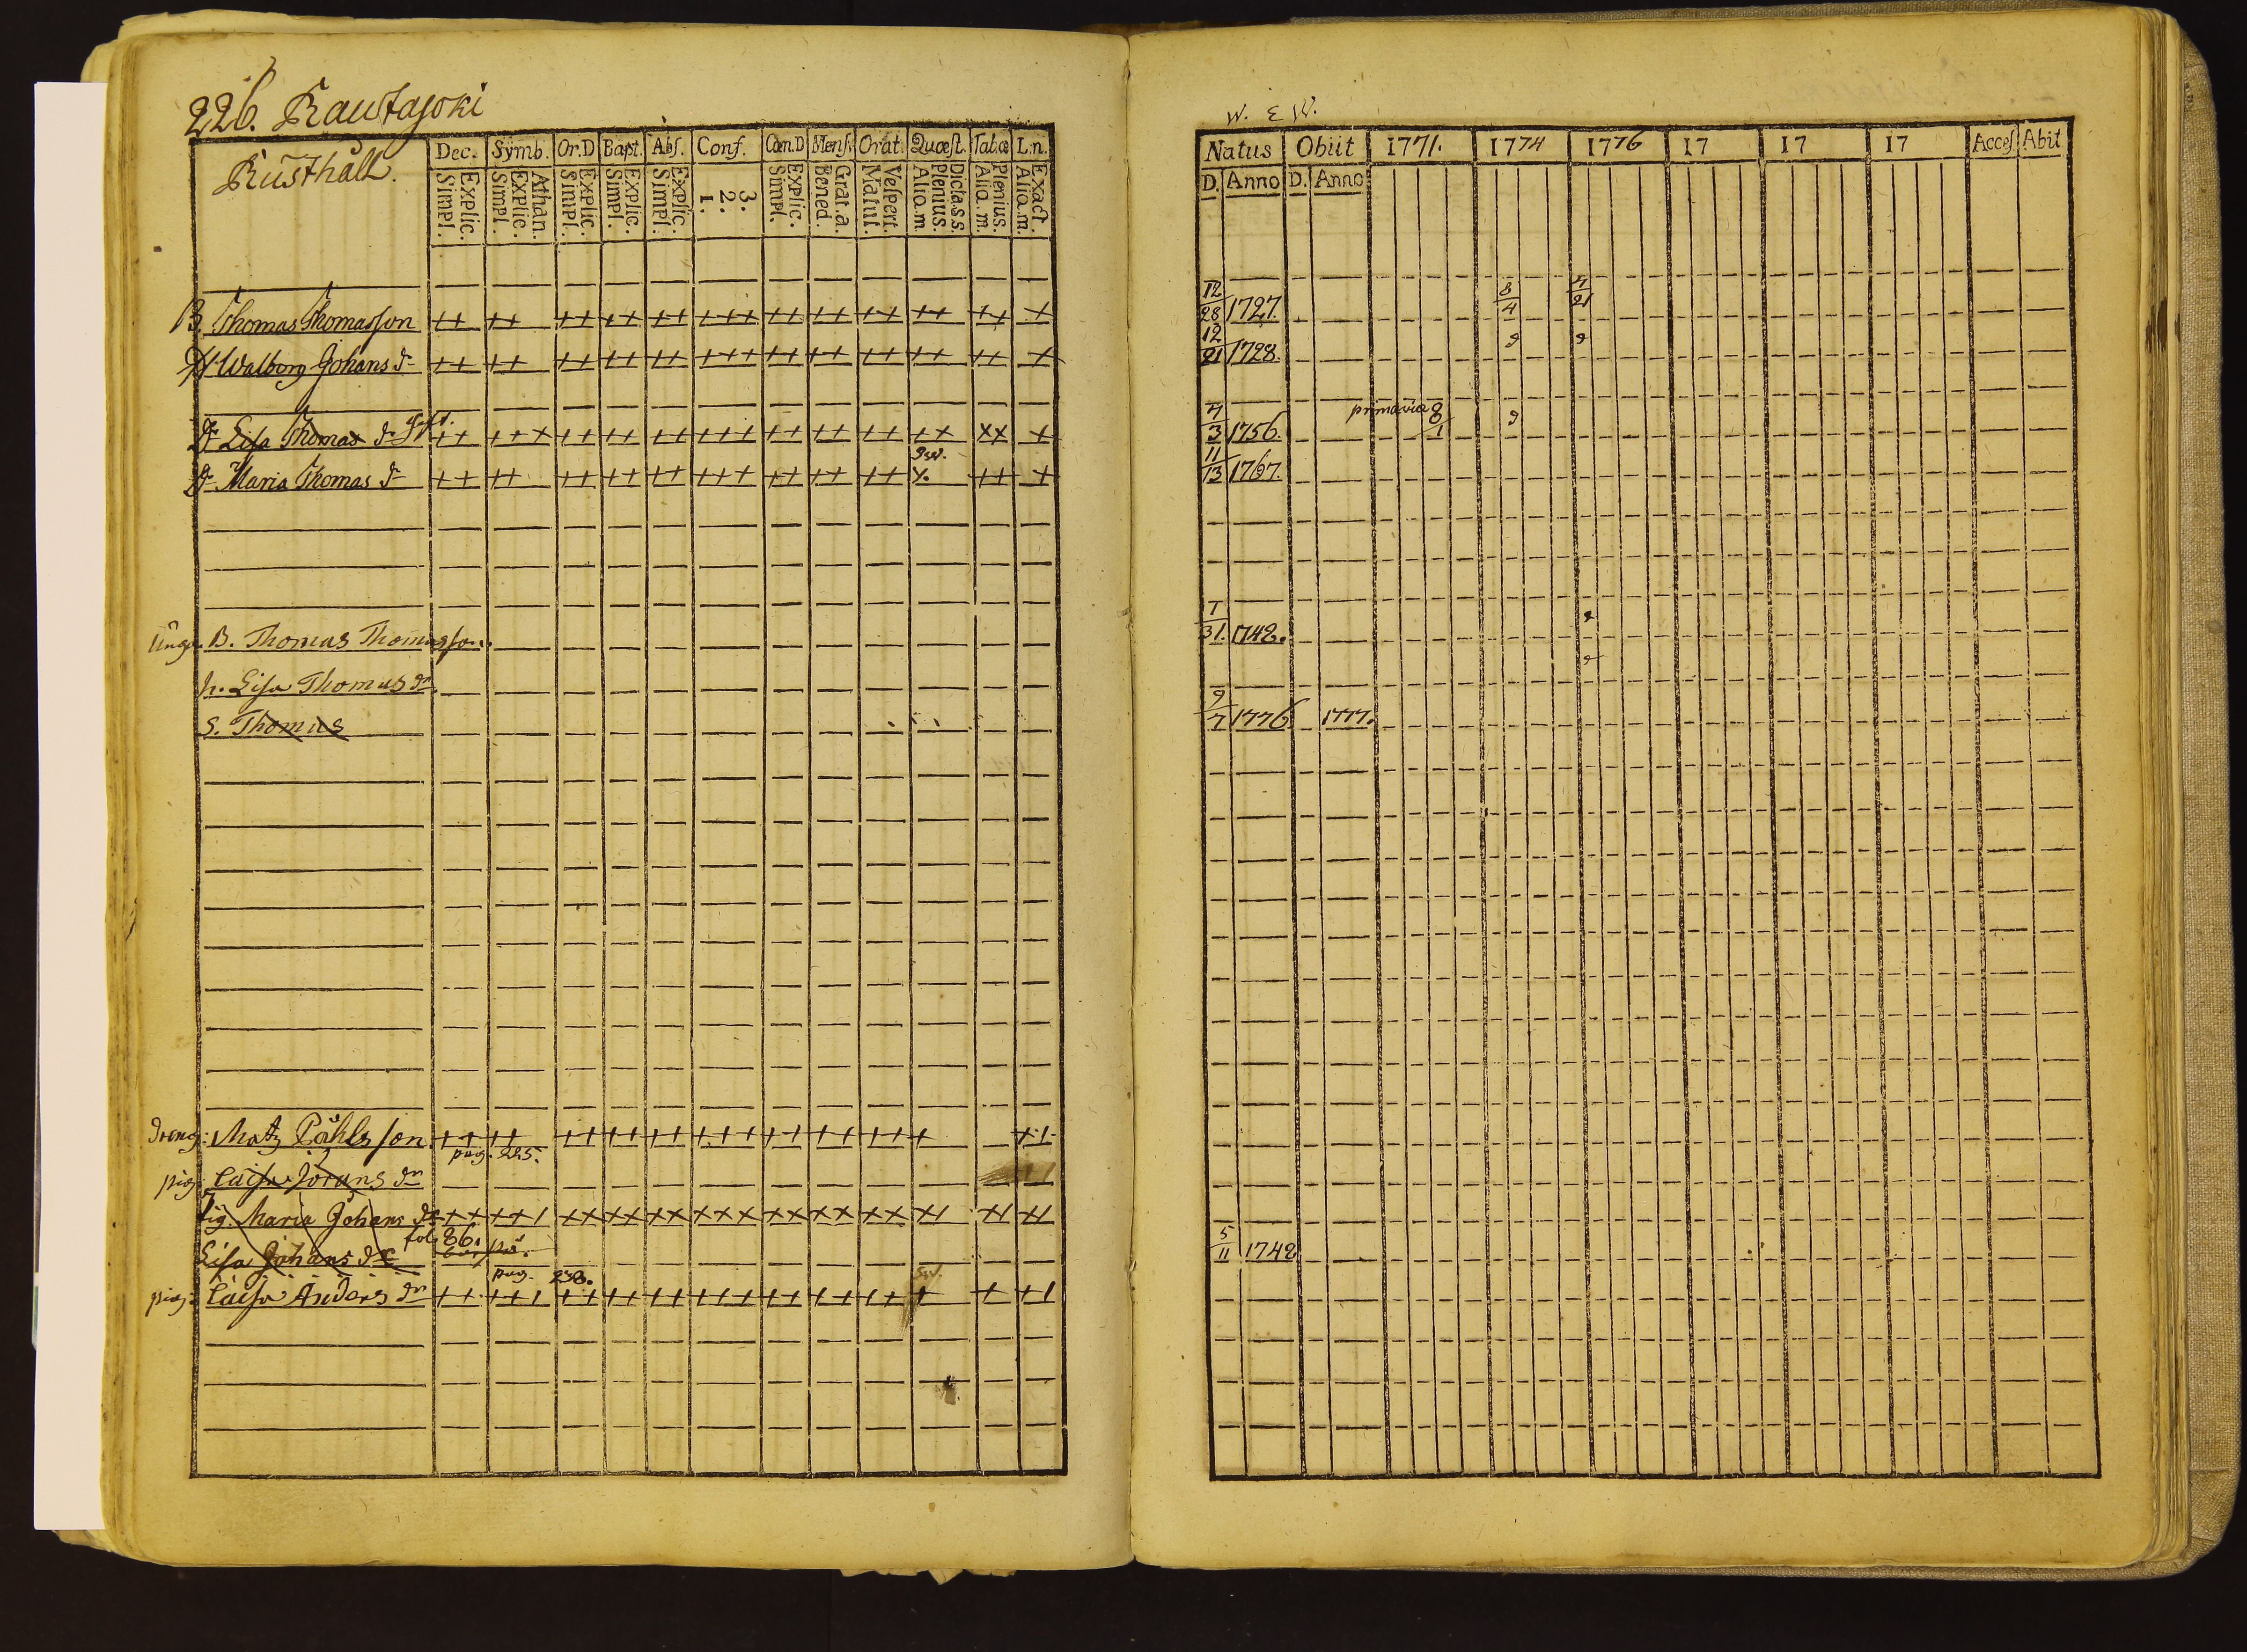 226. Rautajoki
Rusthåll.
Dec. Symb. Or.D Bapt. Abs. Conf. Cœn.D Mens. Orat. Quæst. Tabæ L.n.
Explic. Simpl. Athan. Explic. Simpl. Explic. Simpl. Explic. Simpl. Explic. Simpl. 3. 2. 1. Explic. Simpl. Grat.a. Bened. Vespert. Matut. Dicta.s.s. Plenius. Aliq.m. Plenius. Aliq.m. Exact. Aliq.m.
B. Thomas Thomasson ++ ++ ++ ++ ++ +++ ++ ++ ++ ++ ++ +
H Walborg Johans dr ++ ++ ++ ++ ++ +++ ++ ++ ++ ++ ++ +
Dr Lisa Thomas dr gift. ++ +++ ++ ++ ++ +++ ++ ++ ++ ++ ×× +
Dr Maria Thomas dr ++ ++ ++ ++ ++ +++ ++ ++ ++ ×. ++ +
Unga. B. Thomas Thomasson.
h. Lisa Thomas dr
S. Thomas
Dreng: Matz Påhlsson ++ ++ ++ ++ ++ +++ ++ ++ +++ + +1
pag. 225.
pig. Caisa Jörans dr
Pig. Maria Johans dr ++ ++1 ×× ×× ×× ××× ×× ×× ×× ×1 ×1 ×1
fol. 86.
Lisa Johans dr
pag. 238.
piga: Caisa Anders dr ++ ++1 ++ ++ ++ +++ ++ ++ ++ + + +1
W. E W.
Natus Obiit 1771. 1774 1776 17 17 17 Acces. Abit
D. Anno D. Anno
12/28 1727. 8/4 4/21
12/21 1728.
4/3 1756. primaria 8/1
11/13 1767.
1/31. 1748.
9/7 1776. 1777.
5/11 1748